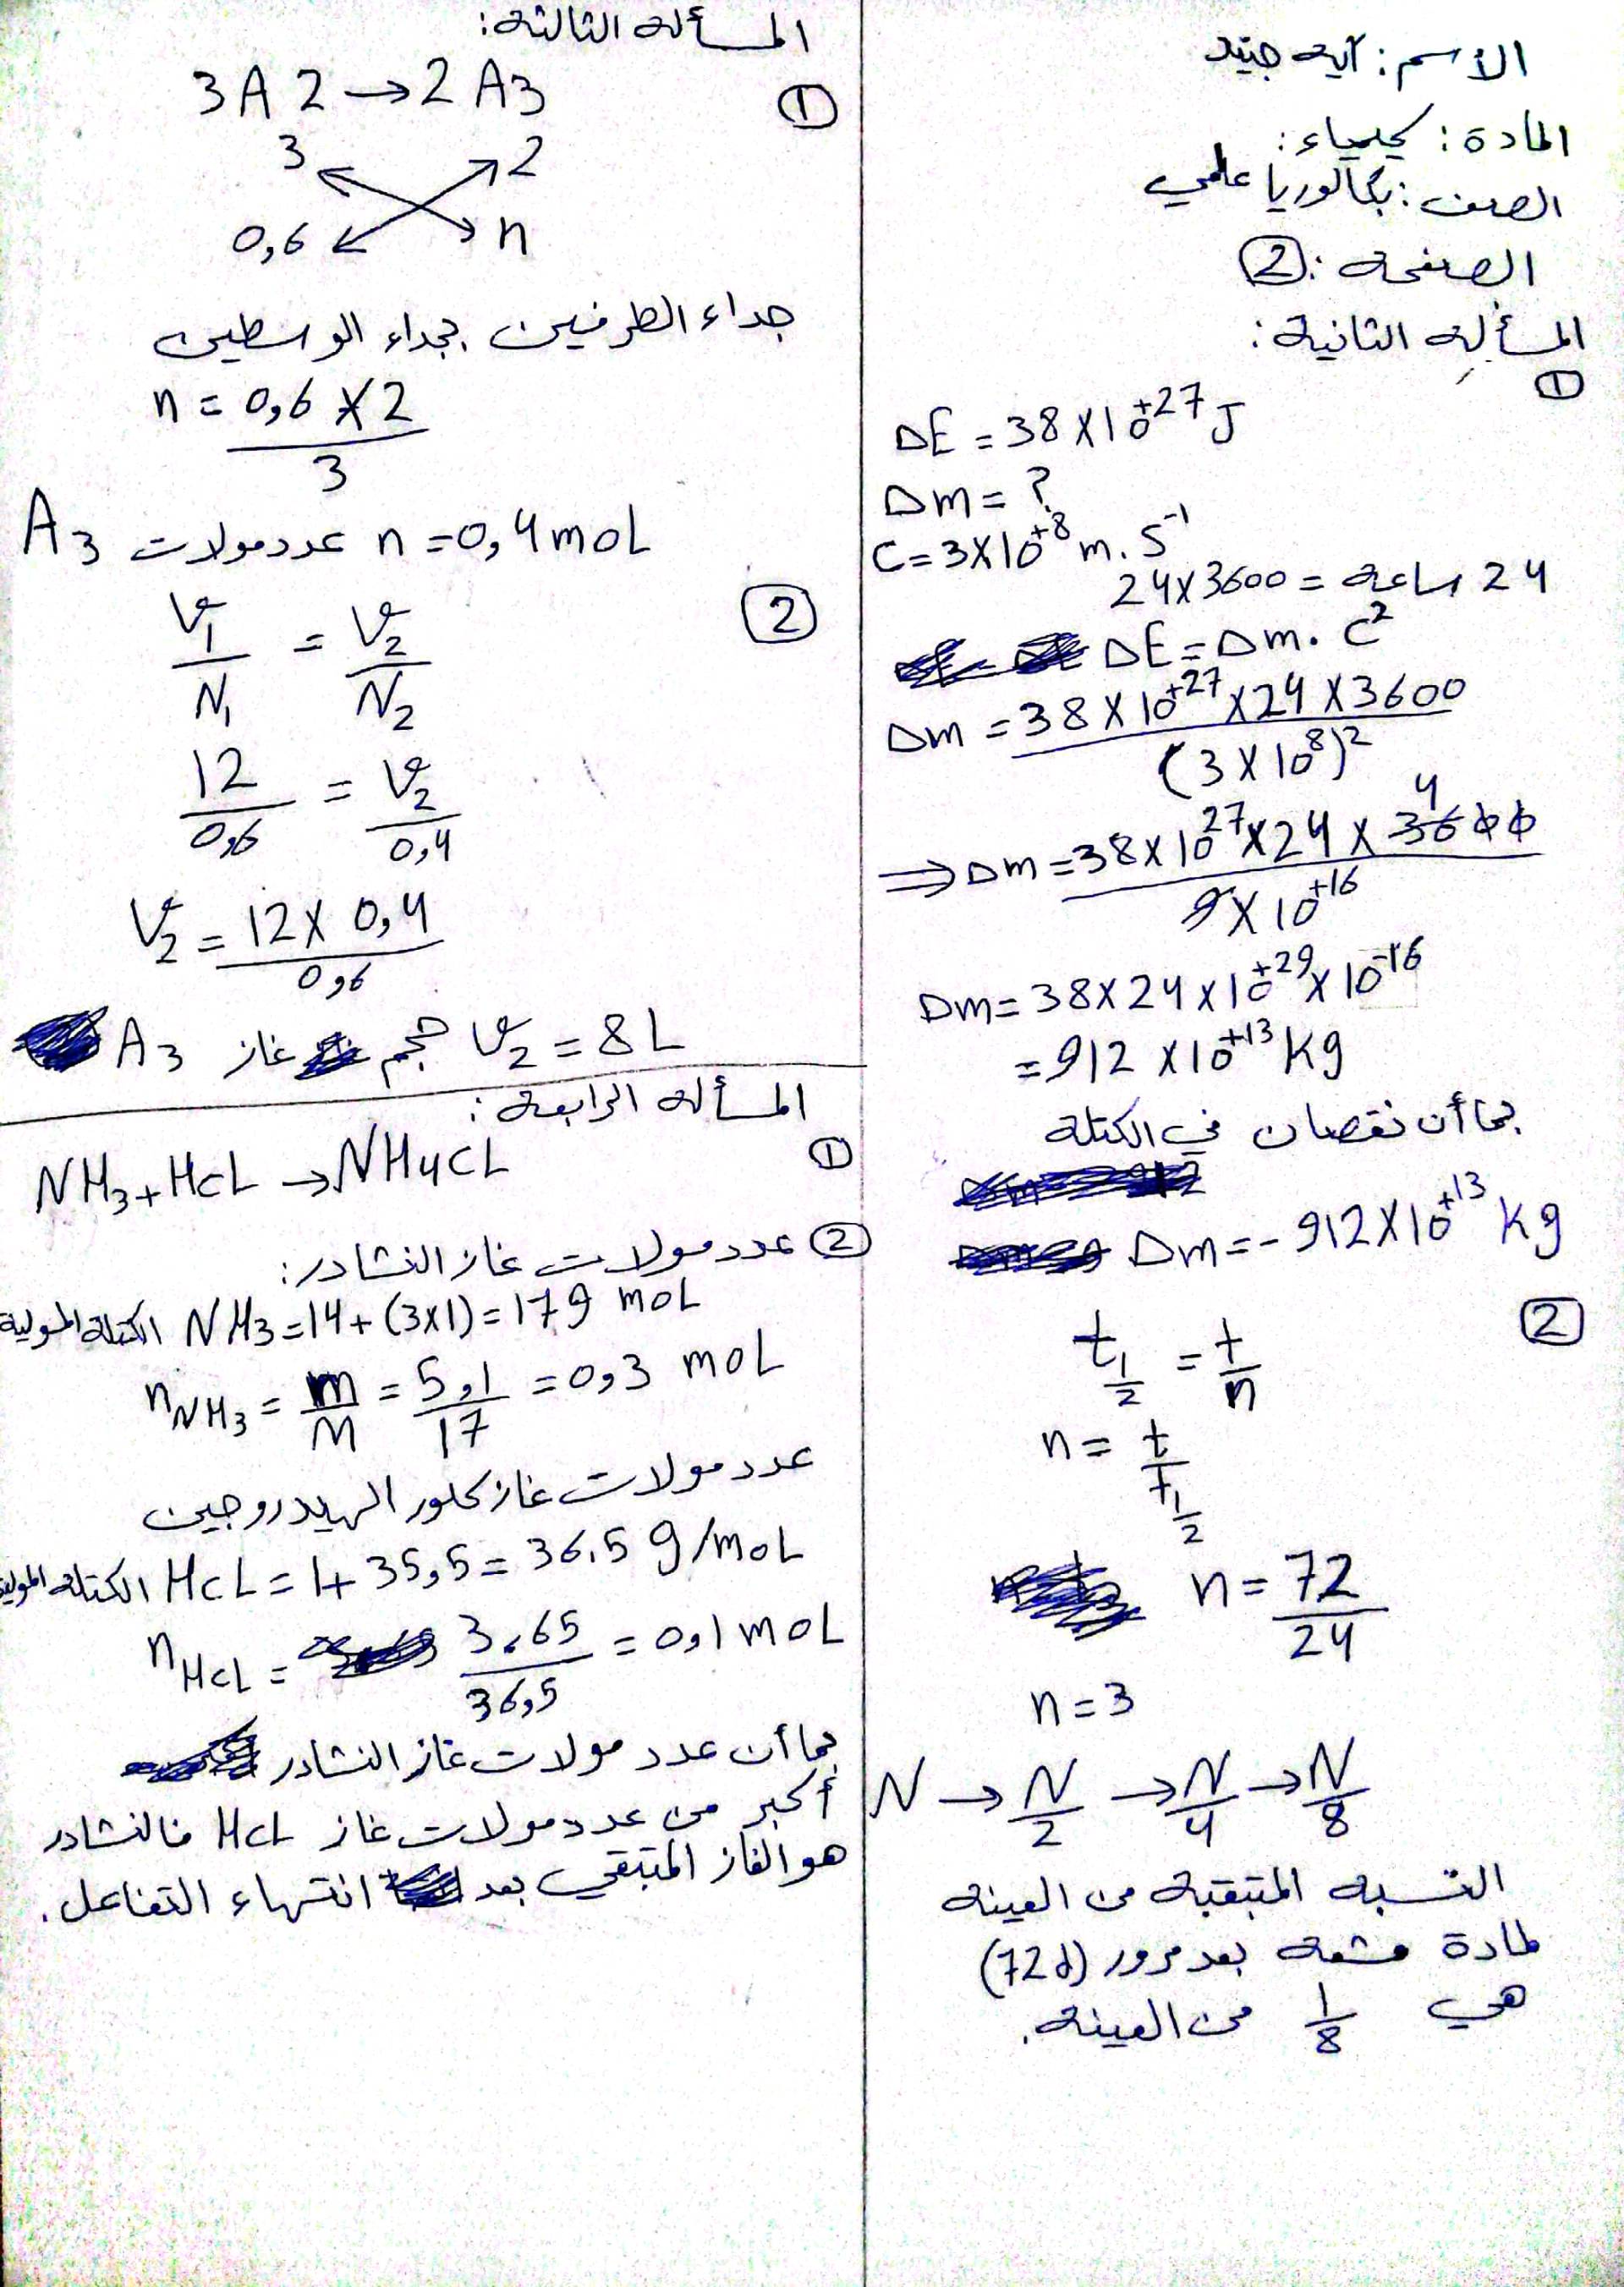 الاسم: آية جنيد
المادة: كيمياء:
الصف: بكالوريا علمي
الصفحة: 2
المسألة الثانية:
1
ΔE = 38 × 10^+27 J
Δm = ?
C = 3 × 10^+8 m.s^-1
24 ساعة = 24 × 3600
ΔE = Δm . C^2
Δm = 38 × 10^+27 × 24 × 3600 / (3 × 10^8)^2
⇒ Δm = 38 × 10^27 × 24 × 3600 4 / 9 × 10^+16
Δm = 38 × 24 × 10^+29 × 10^-16
= 912 × 10^+13 Kg
بما أن نقصان في الكتلة
Δm = - 912 × 10^+13 Kg
2
t1/2 = t/n
n = t / t1/2
n = 72/24
n = 3
N → N/2 → N/4 → N/8
النسبة المتبقية من العينة
لمادة مشعة بعد مرور (72d)
هي 1/8 من العينة.
المسألة الثالثة:
1
3A2 → 2A3
3 2
0,6 n
جداء الطرفين بجداء الوسطين
n = 0,6 × 2 / 3
n = 0,4 moL عدد مولات A3
2
V1/N1 = V2/N2
12/0,6 = V2/0,4
V2 = 12 × 0,4 / 0,6
V2 = 8L حجم غاز A3
المسألة الرابعة:
1
NH3 + HCL → NH4CL
2 عدد مولات غاز النشادر:
الكتلة المولية NH3 = 14 + (3×1) = 17 g moL
nNH3 = m/M = 5,1/17 = 0,3 moL
عدد مولات غاز كلور الهيدروجين
الكتلة المولية HCL = 1 + 35,5 = 36,5 g/moL
nHCL = 3,65/36,5 = 0,1 moL
بما أن عدد مولات غاز النشادر
أكبر من عدد مولات غاز HCL فالنشادر
هو الغاز المتبقي بعد انتهاء التفاعل.